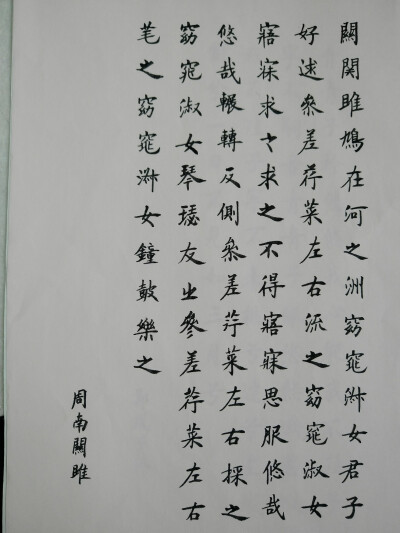 關関雎鳩在河之洲窈窕淑女君子
好逑參差荇菜左右流之窈窕淑女
寤寐求之求之不得寤寐思服悠哉
悠哉輾轉反側參差荇菜左右採之
窈窕淑女琴瑟友之參差荇菜左右
芼之窈窕淑女鐘鼓樂之
周南關雎